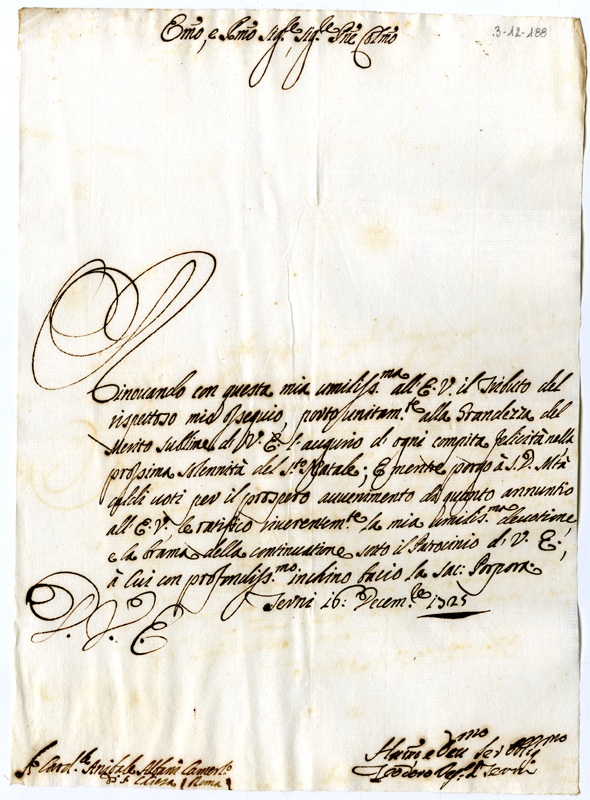 3-12-188
Em̃o, e Rm̃o Sig.re, Sig.re Pne Colm̃o
Rinouando con questa mia umiliss.ma all'E.V. il tributo del
rispettoso mio ossequio, porto unitam.te alla Grandezza del
Merito sublime di V.E. l'augurio di ogni compita felicità nella
prossima solennità del S.to Natale; E mentre porgo à S.D. Mtà
caldi uoti per il prospero auuenimento di quanto annuntio
all'E.V., le ratifico riuerentem.te la mia umiliss.ma deuotione,
e la brama della continuatione sotto il Patrocinio di V.E.,
à Cui con profondiss.mo inchino bacio la sac: Porpora.
Terni 16: Decem.re 1725
D. V. E.
Sr Card.le Anibale Albani Camerl.o
di S. Chiesa / Roma /
Hum̃o e Deu.mo Ser.re Oblig.mo
Teodoro Ves.o di Terni